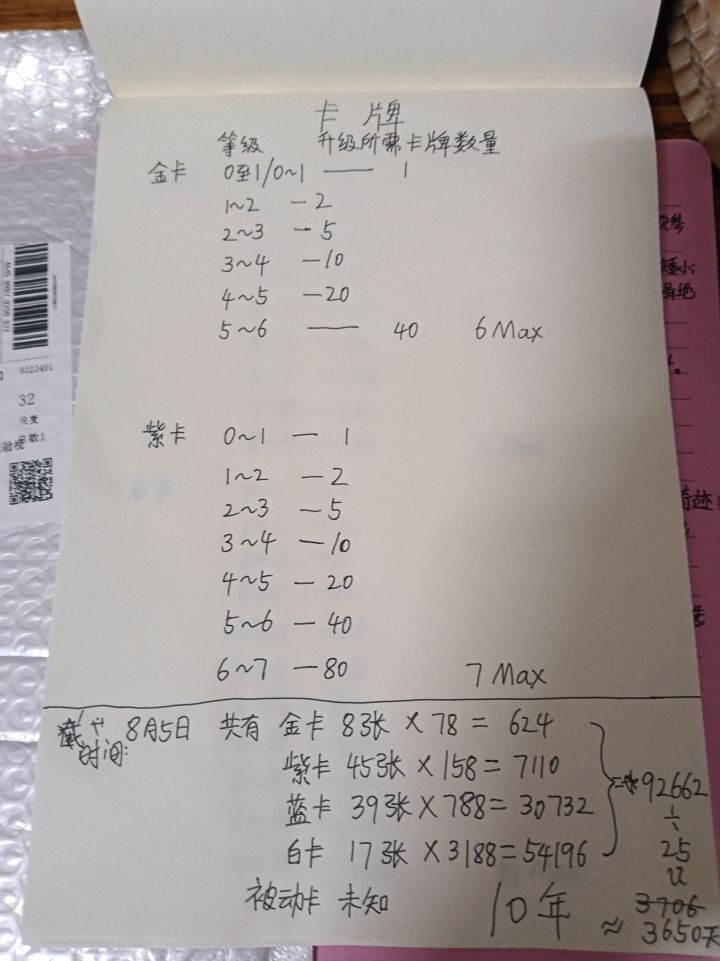 卡牌
等级 升级所需卡牌数量
金卡 0至1/0~1 —— 1
1~2 — 2
2~3 — 5
3~4 — 10
4~5 — 20
5~6 —— 40 6 Max
紫卡 0~1 — 1
1~2 — 2
2~3 — 5
3~4 — 10
4~5 — 20
5~6 — 40
6~7 — 80 7 Max
8月5日 共有 金卡 8张 × 78 = 624
时间:
紫卡 45张 × 158 = 7110
蓝卡 39张 × 788 = 30732
白卡 17张 × 3188 = 54196
= 92662
÷
25
被动卡 未知
10年
3706
≈ 3650天
9323491
32